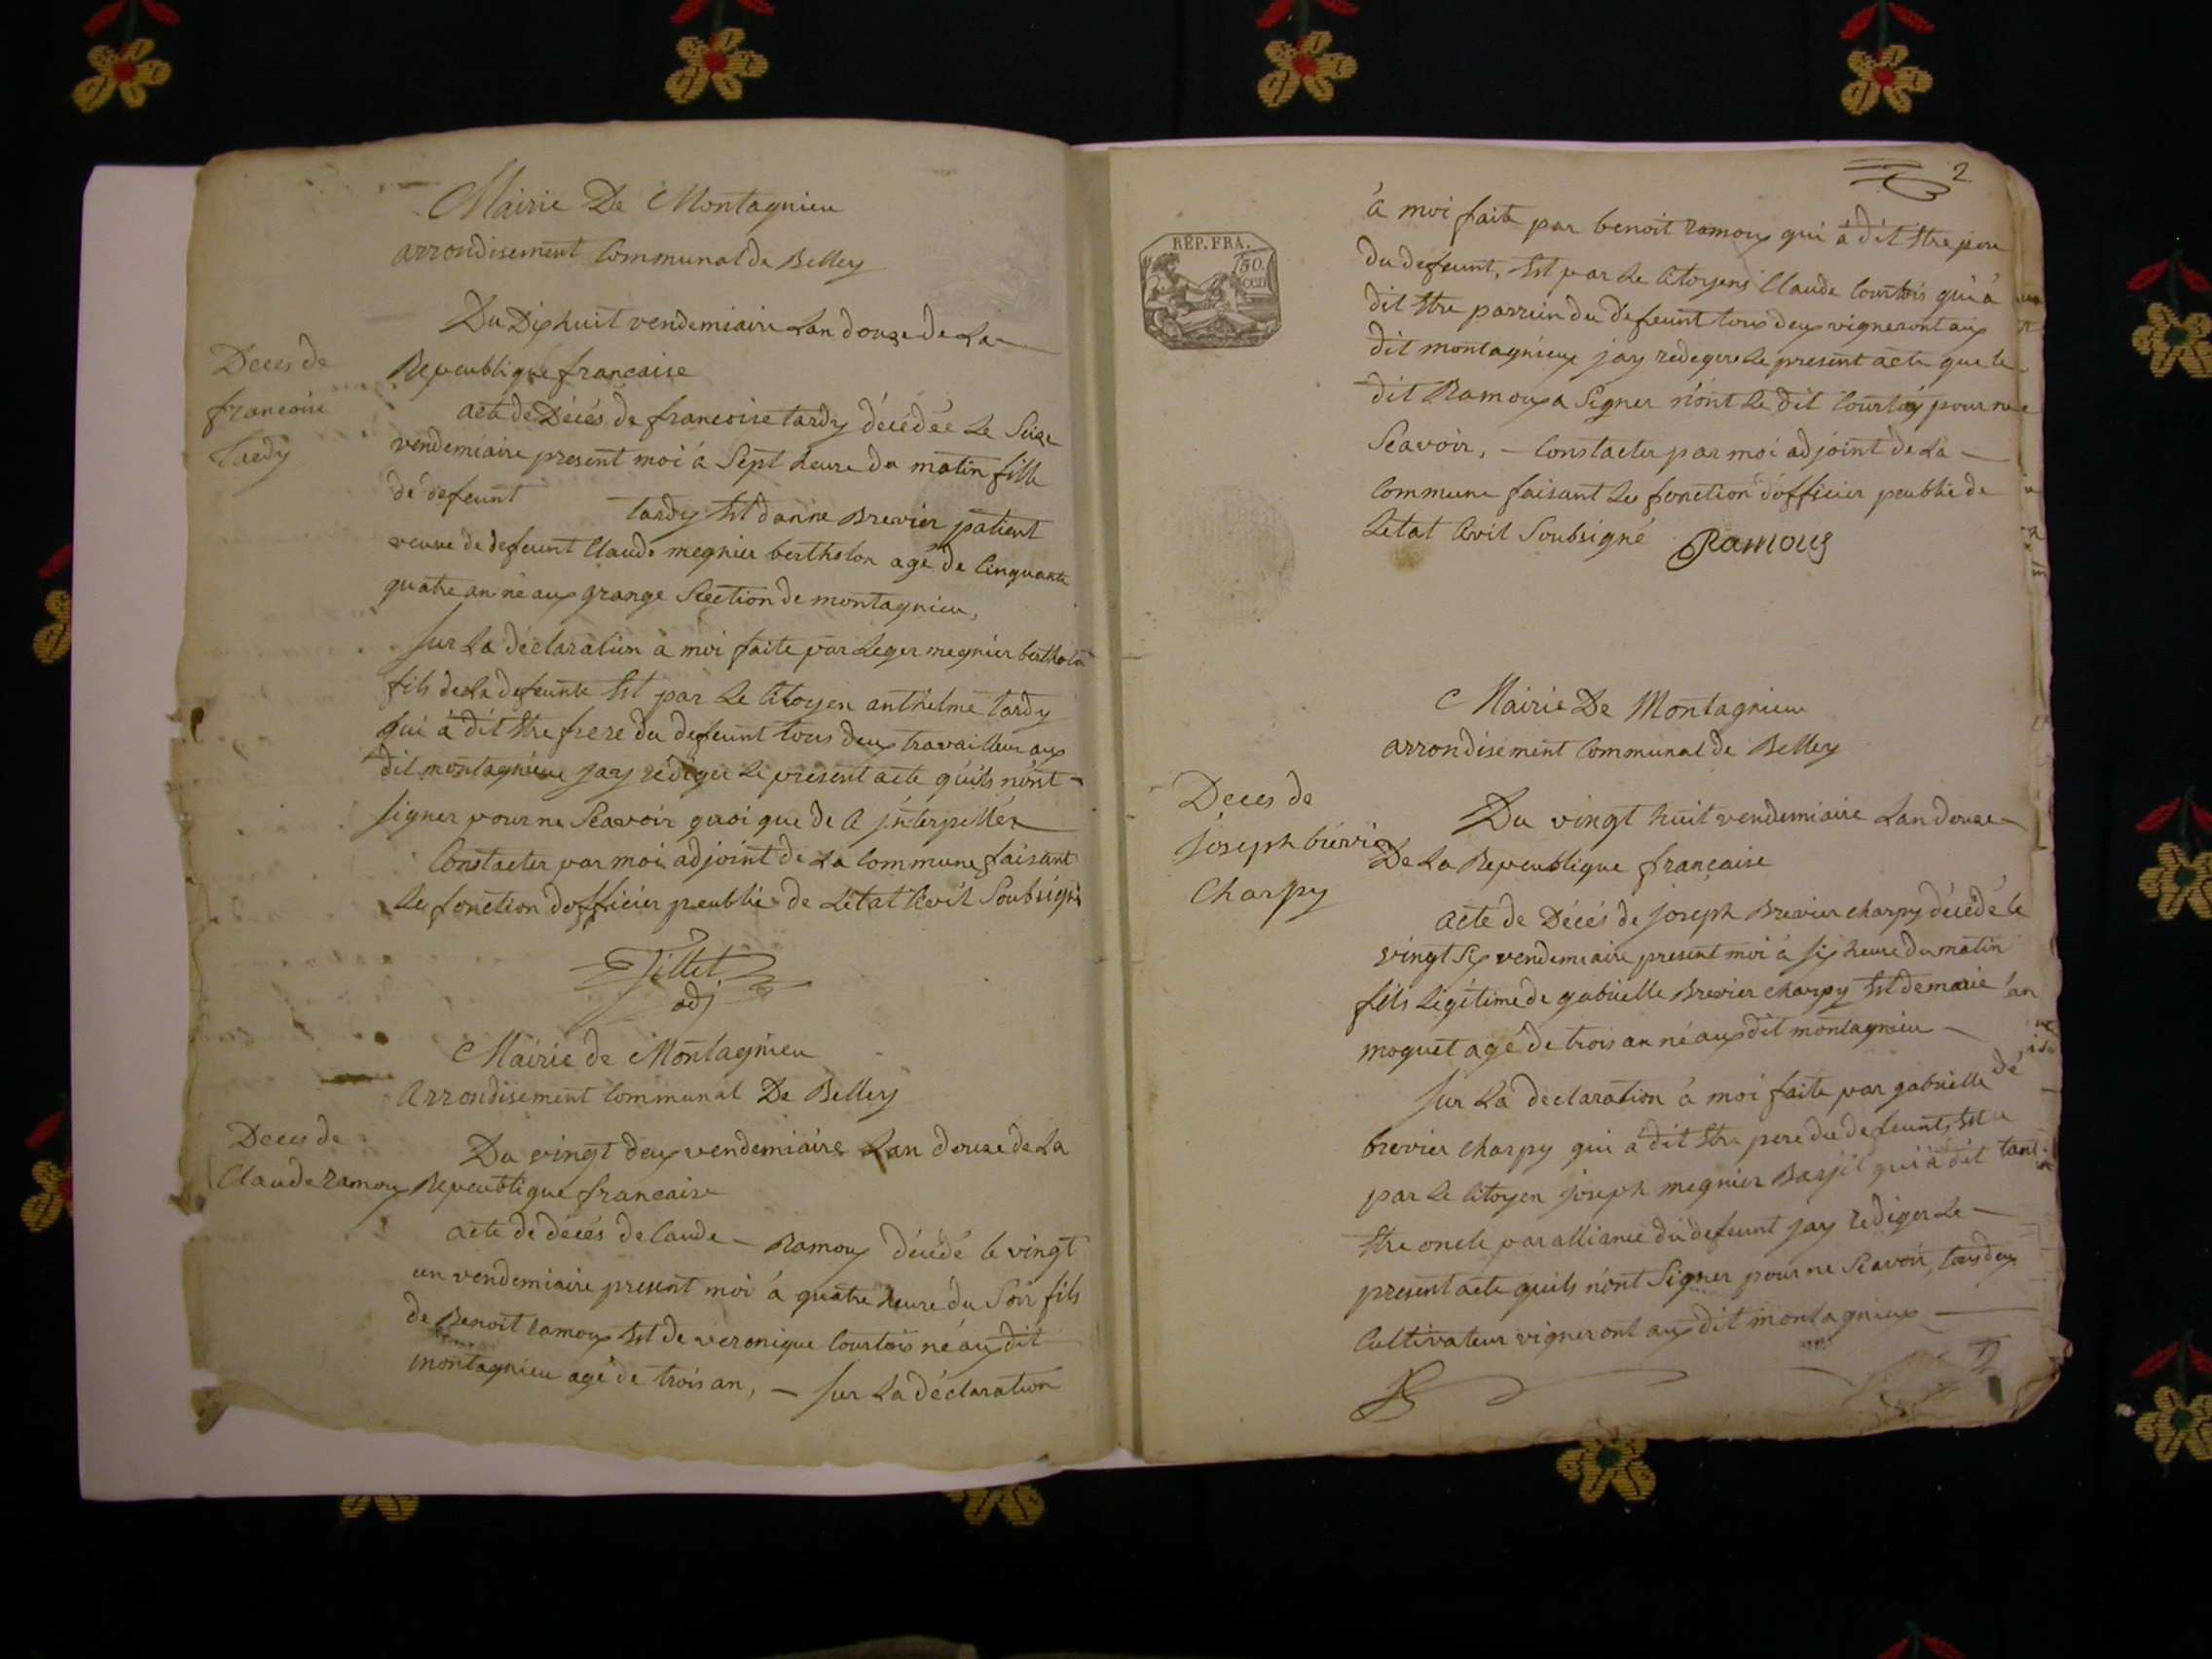 Mairie De Montagnieu
arrondisement Communal de Belley
Du Dix huit vendemiaire Lan douze de La
Repeublique francaise
Deces de
francoise
Tardy
acte de Décés de francoise tardy décédée Le Seize
vendemiaire present moi à Sept heure du matin fille
de defeunt tardy Est danne Brevier patient
veuve de defeunt Claude megnier berthelon agé de Cinquante
quatre an né aux grange Section de montagnieu,
Sur La déclaration a moi faite par Leger megnier berthelon
fils de La defeunte Est par Le Citoyen anthelme tardy
qui à dit Etre frere du defeunt tous deux travailleur aux
dit montagnieux jay rediger Le present acte quils nont
Signer pour ne Scavoir quoi que de a jnterpellér
Constacter par moi adjoint de La Commune faisant
Les fonction dofficier peublic de Létat Civil Soubsigné
Tillet
adj
Mairie de Montagnieu
Arrondisement Communal De Belley
Deces de
Claude ramoux
Du vingt deux vendemiaire Lan douze de La
Repeublique francaise
acte de décés de Claude Ramoux décédé le vingt
un vendemiaire present moi à quatre heure du Soir fils
de Benoit ramoux Est de veronique Courtois né aux dit
montagnieu agé de trois an, — Sur La déclaration
2
RÉP. FRA.
50.
CEN
à moi faite par benoit ramoux qui à dit Etre pere
du defeunt, Est par Le Citoyens Claude Courtois qui à
dit Etre parrein du defeunt tous deux vigneront aux
dit montagnieux jay redeger Le present acte que le
dit Ramoux a Signer nont Le dit Courtois pour ne
Scavoir, — Constacter par moi adjoint de La
Commune faisant Les fonction dofficier peublic de
Letat Civil Soubsigné Ramoux
Mairie De Montagnieu
arrondisement Communal de Belley
Deces de
joseph brevier
Charpy
Du vingt huit vendemiaire Lan douze
De La Repeublique francaise
acte de Décés de joseph Brevier charpy décédé le
vingt Six vendemiaire present moi à Six heure du matin
fils Légétime de gabrielle Brevier charpy Est de marie
moquet agé de trois an né aux dit montagnieu
Sur La declaration à moi faite par gabrielle
brevier Charpy qui à dit Etre pere du defeunt, Est
par Le Citoyen joseph megnier Basjit qui à dit
Etre oncle par alliance du defeunt jay rediger Le
present acte quils nont Signer pour ne Scavoir, tous deux
Cultivateur vigneront aux dit montagnieux